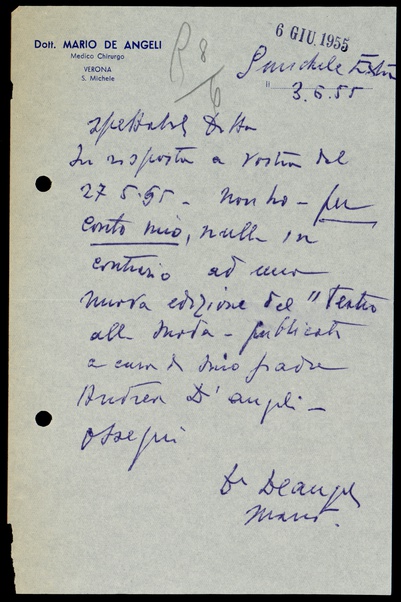 Dott. MARIO DE ANGELI
Medico Chirurgo
VERONA
S. Michele
R 8/6
6 GIU. 1955
S. Michele Extra
li 3.6.55
Spettabile Ditta
In risposta a vostra del
27 5.55 - non ho - per
conto mio, nulla in
contrario ad una
nuova edizione del "Teatro
alla moda - pubblicato
a cura di mio padre
Andrea D'Angeli -
Ossequi
Dr Deangeli
Mario.